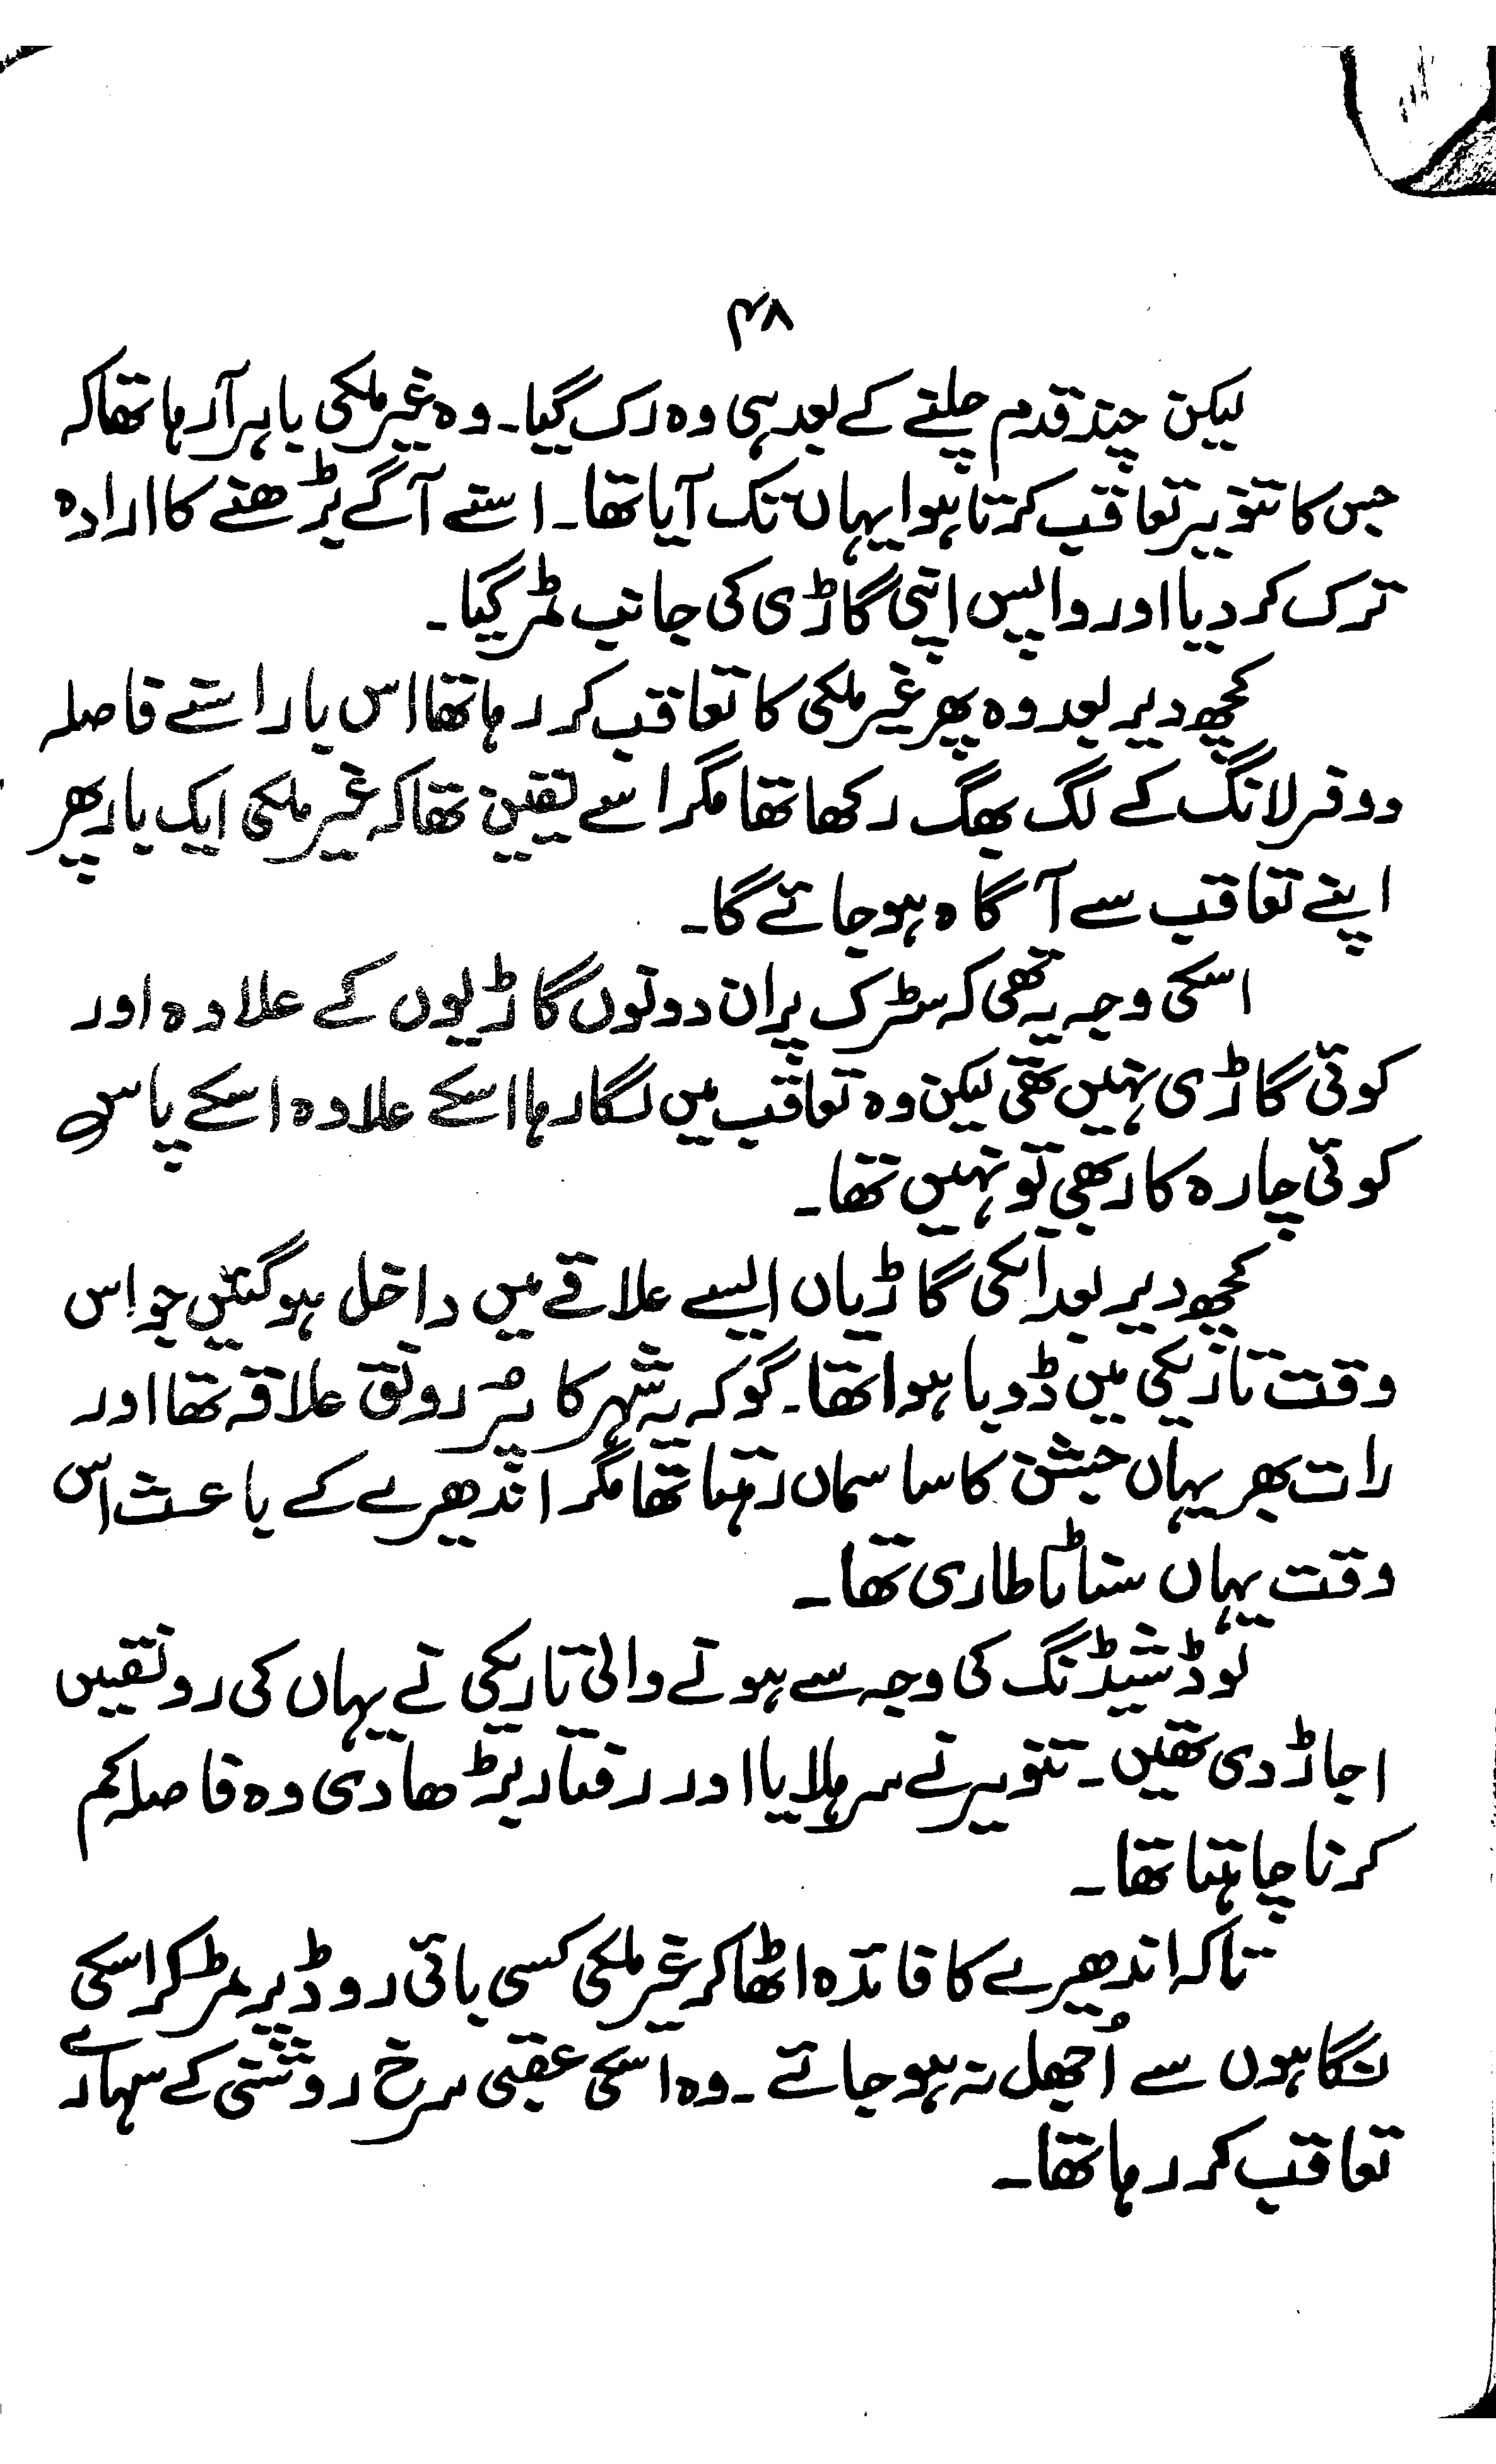 ۴۸
لیکن چند قدم چلنے کے بعد ہی وہ رک گیا۔ وہ غیر ملکی باہر آ رہا تھا کہ
جس کا تنویر تعاقب کرتا ہوا یہاں تک آیا تھا۔ اسنے آگے بڑھنے کا ارادہ
ترک کر دیا اور واپس اپنی گاڑی کی جانب مڑ گیا۔
کچھ دیر بعد وہ پھر غیر ملکی کا تعاقب کر رہا تھا اس بار اسنے فاصلہ
دو فرلانگ کے لگ بھگ رکھا تھا مگر اسے یقین تھا کہ غیر ملکی ایک بار پھر
اپنے تعاقب سے آگاہ ہو جائے گا۔
اسکی وجہ یہ تھی کہ سڑک پر ان دونوں گاڑیوں کے علاوہ اور
کوئی گاڑی نہیں تھی لیکن وہ تعاقب میں لگا رہا اسکے علاوہ اسکے پاس
کوئی چارہ کار بھی تو نہیں تھا۔
کچھ دیر بعد انکی گاڑیاں ایسے علاقے میں داخل ہو گئیں جو اِس
وقت تاریکی میں ڈوبا ہوا تھا۔ گو کہ یہ شہر کا پُر رونق علاقہ تھا اور
رات بھر یہاں جشن کا سا سماں رہتا تھا مگر اندھیرے کے باعث اس
وقت یہاں سناٹا طاری تھا۔
لوڈ شیڈنگ کی وجہ سے ہونے والی تاریکی نے یہاں کی رونقیں
اجاڑ دی تھیں۔ تنویر نے سر ہلایا اور رفتار بڑھا دی وہ فاصلہ کم
کرنا چاہتا تھا۔
تاکہ اندھیرے کا فائدہ اٹھا کر غیر ملکی کسی بائی روڈ پر مڑ کر اسکی
نگاہوں سے اُجھل نہ ہو جائے۔ وہ اسکی عقبی سرخ روشنی کے سہارے
تعاقب کر رہا تھا۔